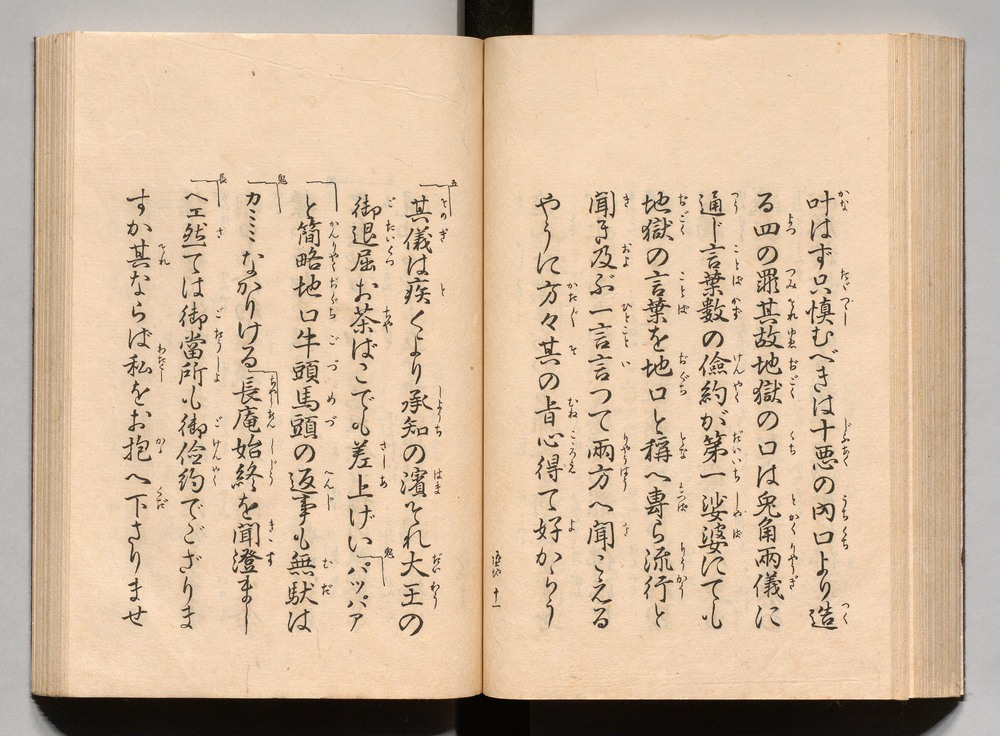 叶はず只慎むべきは十悪の内口より造
る四の罪其故地獄の口は兎角両儀に
通じ言葉数の儉約が第一娑婆にても
地獄の言葉を地口と稱へ専ら流行と
聞き及ぶ一言言つて両方へ聞こえる
やうに方々其の旨心得て好からう
其儀は疾くより承知の濱それ大王の
御退屈お茶ばこでも差上げい パッパア
と簡略地口牛頭馬頭の返事も無駄は
カミミなかりける 長庵始終を聞澄まし
ヘエ然ては御當所も御儉約でござりま
すか其ならば私をお抱へ下さりませ